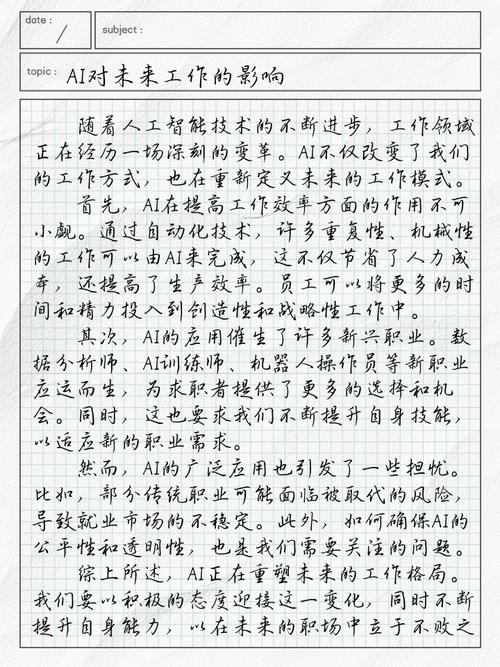 date :
subject :
topic : AI对未来工作的影响
随着人工智能技术的不断进步，工作领域
正在经历一场深刻的变革。AI不仅改变了我们
的工作方式，也在重新定义未来的工作模式。
首先，AI在提高工作效率方面的作用不可
小觑。通过自动化技术，许多重复性、机械性
的工作可以由AI来完成，这不仅节省了人力成
本，还提高了生产效率。员工可以将更多的时
间和精力投入到创造性和战略性工作中。
其次，AI的应用催生了许多新兴职业。数
据分析师、AI训练师、机器人操作员等新职业
应运而生，为求职者提供了更多的选择和机
会。同时，这也要求我们不断提升自身技能，
以适应新的职业需求。
然而，AI的广泛应用也引发了一些担忧。
比如，部分传统职业可能面临被取代的风险，
导致就业市场的不稳定。此外，如何确保AI的
公平性和透明性，也是我们需要关注的问题。
综上所述，AI正在重塑未来的工作格局。
我们要以积极的态度迎接这一变化，同时不断
提升自身能力，以在未来的职场中立于不败之